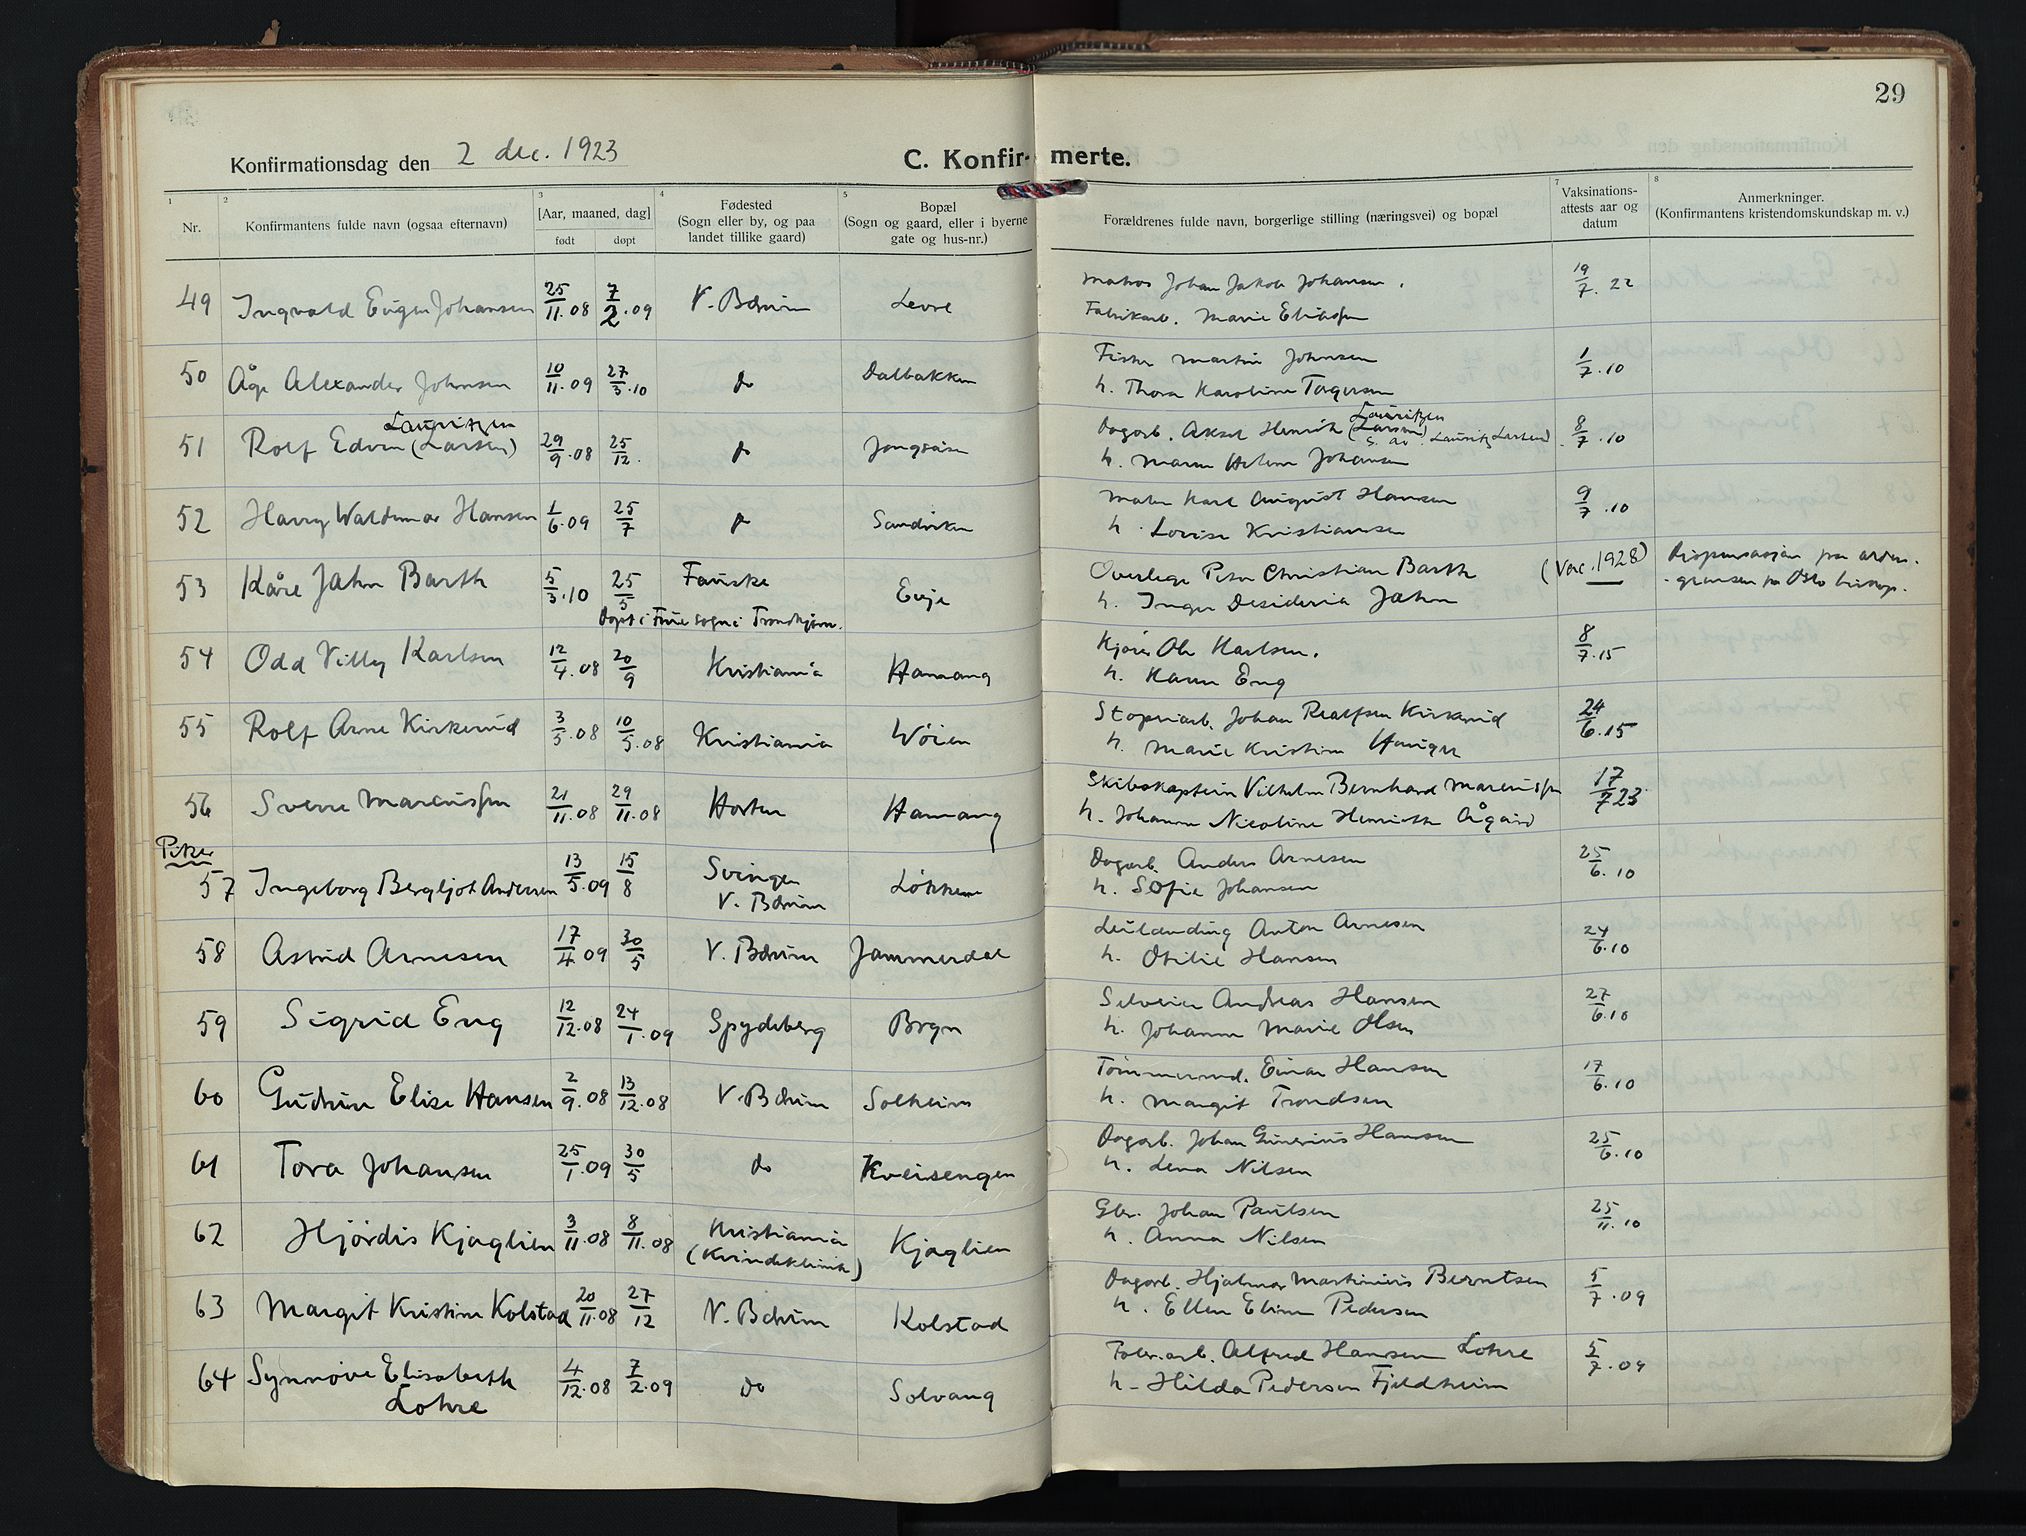 29
Konfirmationsdag den 2 dec. 1923
C. Konfir- merte.
1 2 3 4 5 7 8
Nr.
Konfirmantens fulde navn (ogsaa efternavn)
[Aar, maaned, dag]
født døpt
Fødested
(Sogn eller by, og paa
landet tillike gaard)
Bopæl
(Sogn og gaard, eller i byerne
gate og hus-nr.)
Forældrenes fulde navn, borgerlige stilling (næringsvei) og bopæl
Vaksinations-
attests aar og
datum
Anmerkninger.
(Konfirmantens kristendomskundskap m. v.)
49 Ingvald Eugen Johansen 25/11.08 7/2.09 V. Bærum Levre Matros Johan Jakob Johansen. 19/7.22
Fabrikarb. Marie
50 Åge Alexander Johnsen 10/11.09 27/3.10 do Dalbakken Fisker Martin Johnsen 1/7.10
h. Thora Karoline Torgersen
Lauritzen Lauritzen
51 Rolf Edvin (Larsen) 29/9.08 25/12. do Dagarb. Aksel Henrik (Larsen) 8/7.10
s. av Lauritz Larsen
h. Maren Helene Johansen
52 Harry Waldemar Hansen 1/6.09 25/7 do Sandviken Maler Karl August Hansen 9/7.10
h. Lovise Kristiansen
53 Kåre Jahn Barth 5/3.10 25/5 Fauske Evje Overlege Peter Christian Barth (Vac. 1928)
Døpt i Frue sogn i Trondhjem.
h. Inger Desideria Jahn
Dispensasjon fra alders-
grensen fra Oslo biskop.
54 Odd Villy Karlsen 12/4.08 20/9 Kristiania Hamang Kjører Ole Karlsen. 8/7.15
h. Karen Eng
55 Rolf Arne Kirkerud 3/5.08 10/5.08 Kristiania Wøien Støperiarb. Johan Kirkerud 24/6.15
h. Marie Kristine Hauger
56 Sverre Marcussen 21/11.08 29/11.08 Horten Hamang Skibskaptein Vilhelm Bernhard Marcussen 17/7 23
h. Johanne Nicoline Henriette Ågård
Piker
57 Ingeborg Bergljot Andersen 13/5.09 15/8 Svingen Løkken Dagarb. Anders Arnesen 25/6.10
V. Bærum
h. Sofie Johansen
58 Astrid Arnesen 17/4 09 30/5 V. Bærum Jammerdal Leilending Anton Arnesen 24/6.10
h. Otilie Hansen
59 Sigrid Eng 12/12.08 24/1.09 Spydeberg Bryn Andreas Hansen 27/6.10
h. Johanne Marie Olsen
60 Gudrun Elise Hansen 2/9.08 13/12.08 V. Bærum Solheim Tømmermd. Einar Hansen 17/6.10
h. Margit Trondsen
61 Tora Johansen 25/1.09 30/5 do Kveisengen Dagarb. Johan Gunerius Hansen 25/6.10
h. Lena Nilsen
62 Hjørdis Kjaglien 3/11.08 8/11.08 Kristiania Kjaglien Gbr. Johan Paulsen 25/11.10
(Kvindeklinik)
h. Anna Nilsen
63 Margit Kristine Kolstad 20/11.08 27/12 V. Bærum Kolstad Dagarb. Hjalmar Martinius Berntsen 5/7.09
h. Ellen Eline Pedersen
64 Synnøve Elisabeth 4/12.08 7/2.09 do Solvang Fabr.arb. Alfred Hansen Lohre 5/7.09
Lohre
h. Hilda Pedersen Fjeldheim